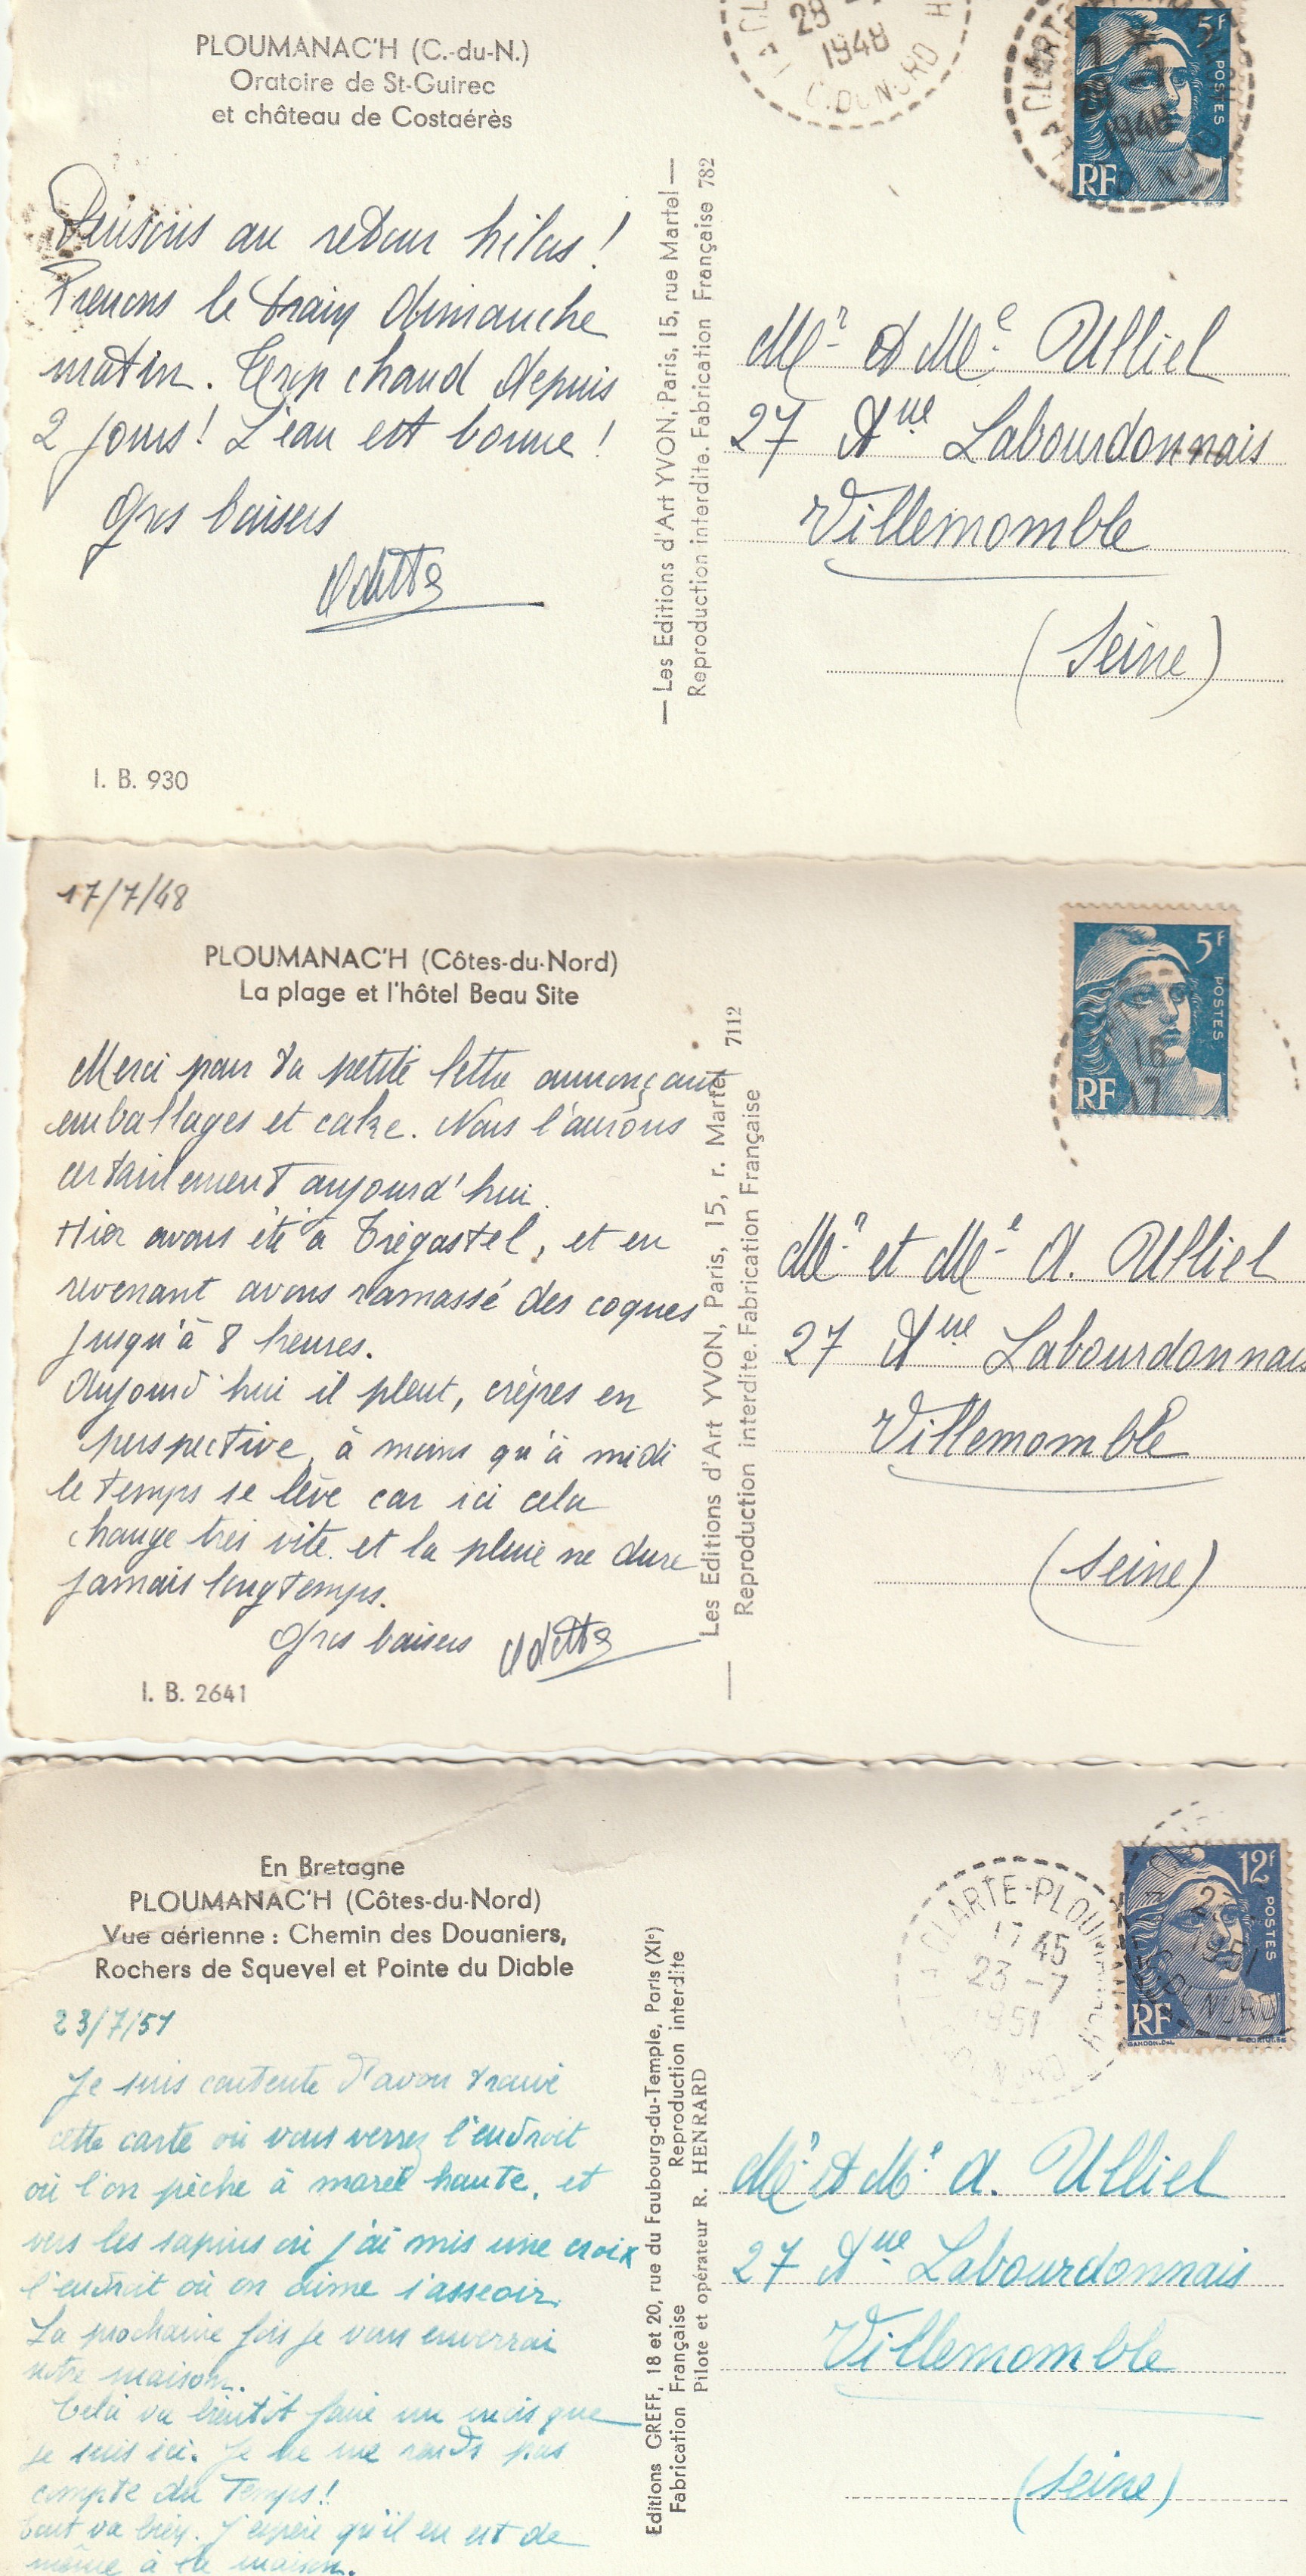 PLOUMANAC'H (C.-du-N.)
Oratoire de St-Guirec
et château de Costaérès
Pensons au retour hélas !
Prenons le train dimanche
matin. Trop chaud depuis
2 jours ! L'eau est bonne !
Gros baisers
Odette
I. B. 930
— Les Editions d'Art YVON, Paris, 15, rue Martel —
Reproduction interdite. Fabrication Française 782
28
1948
C. DU NORD
LA CLARTE
1948
5F
POSTES
RF
Mr et Me Ulliel
27 Aue Labourdonnais
Villemomble
(Seine)
17/7/48
PLOUMANAC'H (Côtes-du-Nord)
La plage et l'hôtel Beau Site
Merci pour ta petite lettre annonçant
emballages et cake. Nous l'aurons
certainement aujourd'hui.
Hier avons été à Trégastel, et en
revenant avons ramassé des coques
jusqu'à 8 heures.
Aujourd'hui il pleut, crêpes en
perspective, à moins qu'à midi
le temps se lève car ici cela
change très vite et la pluie ne dure
jamais longtemps.
Gros baisers Odette
I. B. 2641
— Les Editions d'Art YVON, Paris, 15, r. Martel 7112
Reproduction interdite. Fabrication Française
5F
POSTES
RF
16
17
Mr et Me A. Ulliel
27 Aue Labourdonnais
Villemomble
(Seine)
En Bretagne
PLOUMANAC'H (Côtes-du-Nord)
Vue aérienne : Chemin des Douaniers,
Rochers de Squevel et Pointe du Diable
23/7/51
Je suis contente d'avoir trouvé
cette carte où vous verrez l'endroit
où l'on pêche à marée haute, et
vers les sapins où j'ai mis une croix
l'endroit où on aime s'asseoir.
La prochaine fois je vous enverrai
notre maison.
Celà va bientôt faire un mois que
je suis ici. Je ne me rends pas
compte du temps!
Tout va bien. J'espère qu'il en est de
même à la maison.
Editions GREFF, 18 et 20, rue du Faubourg-du-Temple, Paris (XIe)
Fabrication Française Reproduction interdite
Pilote et opérateur R. HENRARD
LA CLARTE-PLOUMANACH
17 45
23 -7
1951
C. DU NORD
12F
POSTES
RF
23
1951
GANDON.DEL.
Mr et Me A. Ulliel
27 Aue Labourdonnais
Villemomble
(Seine)